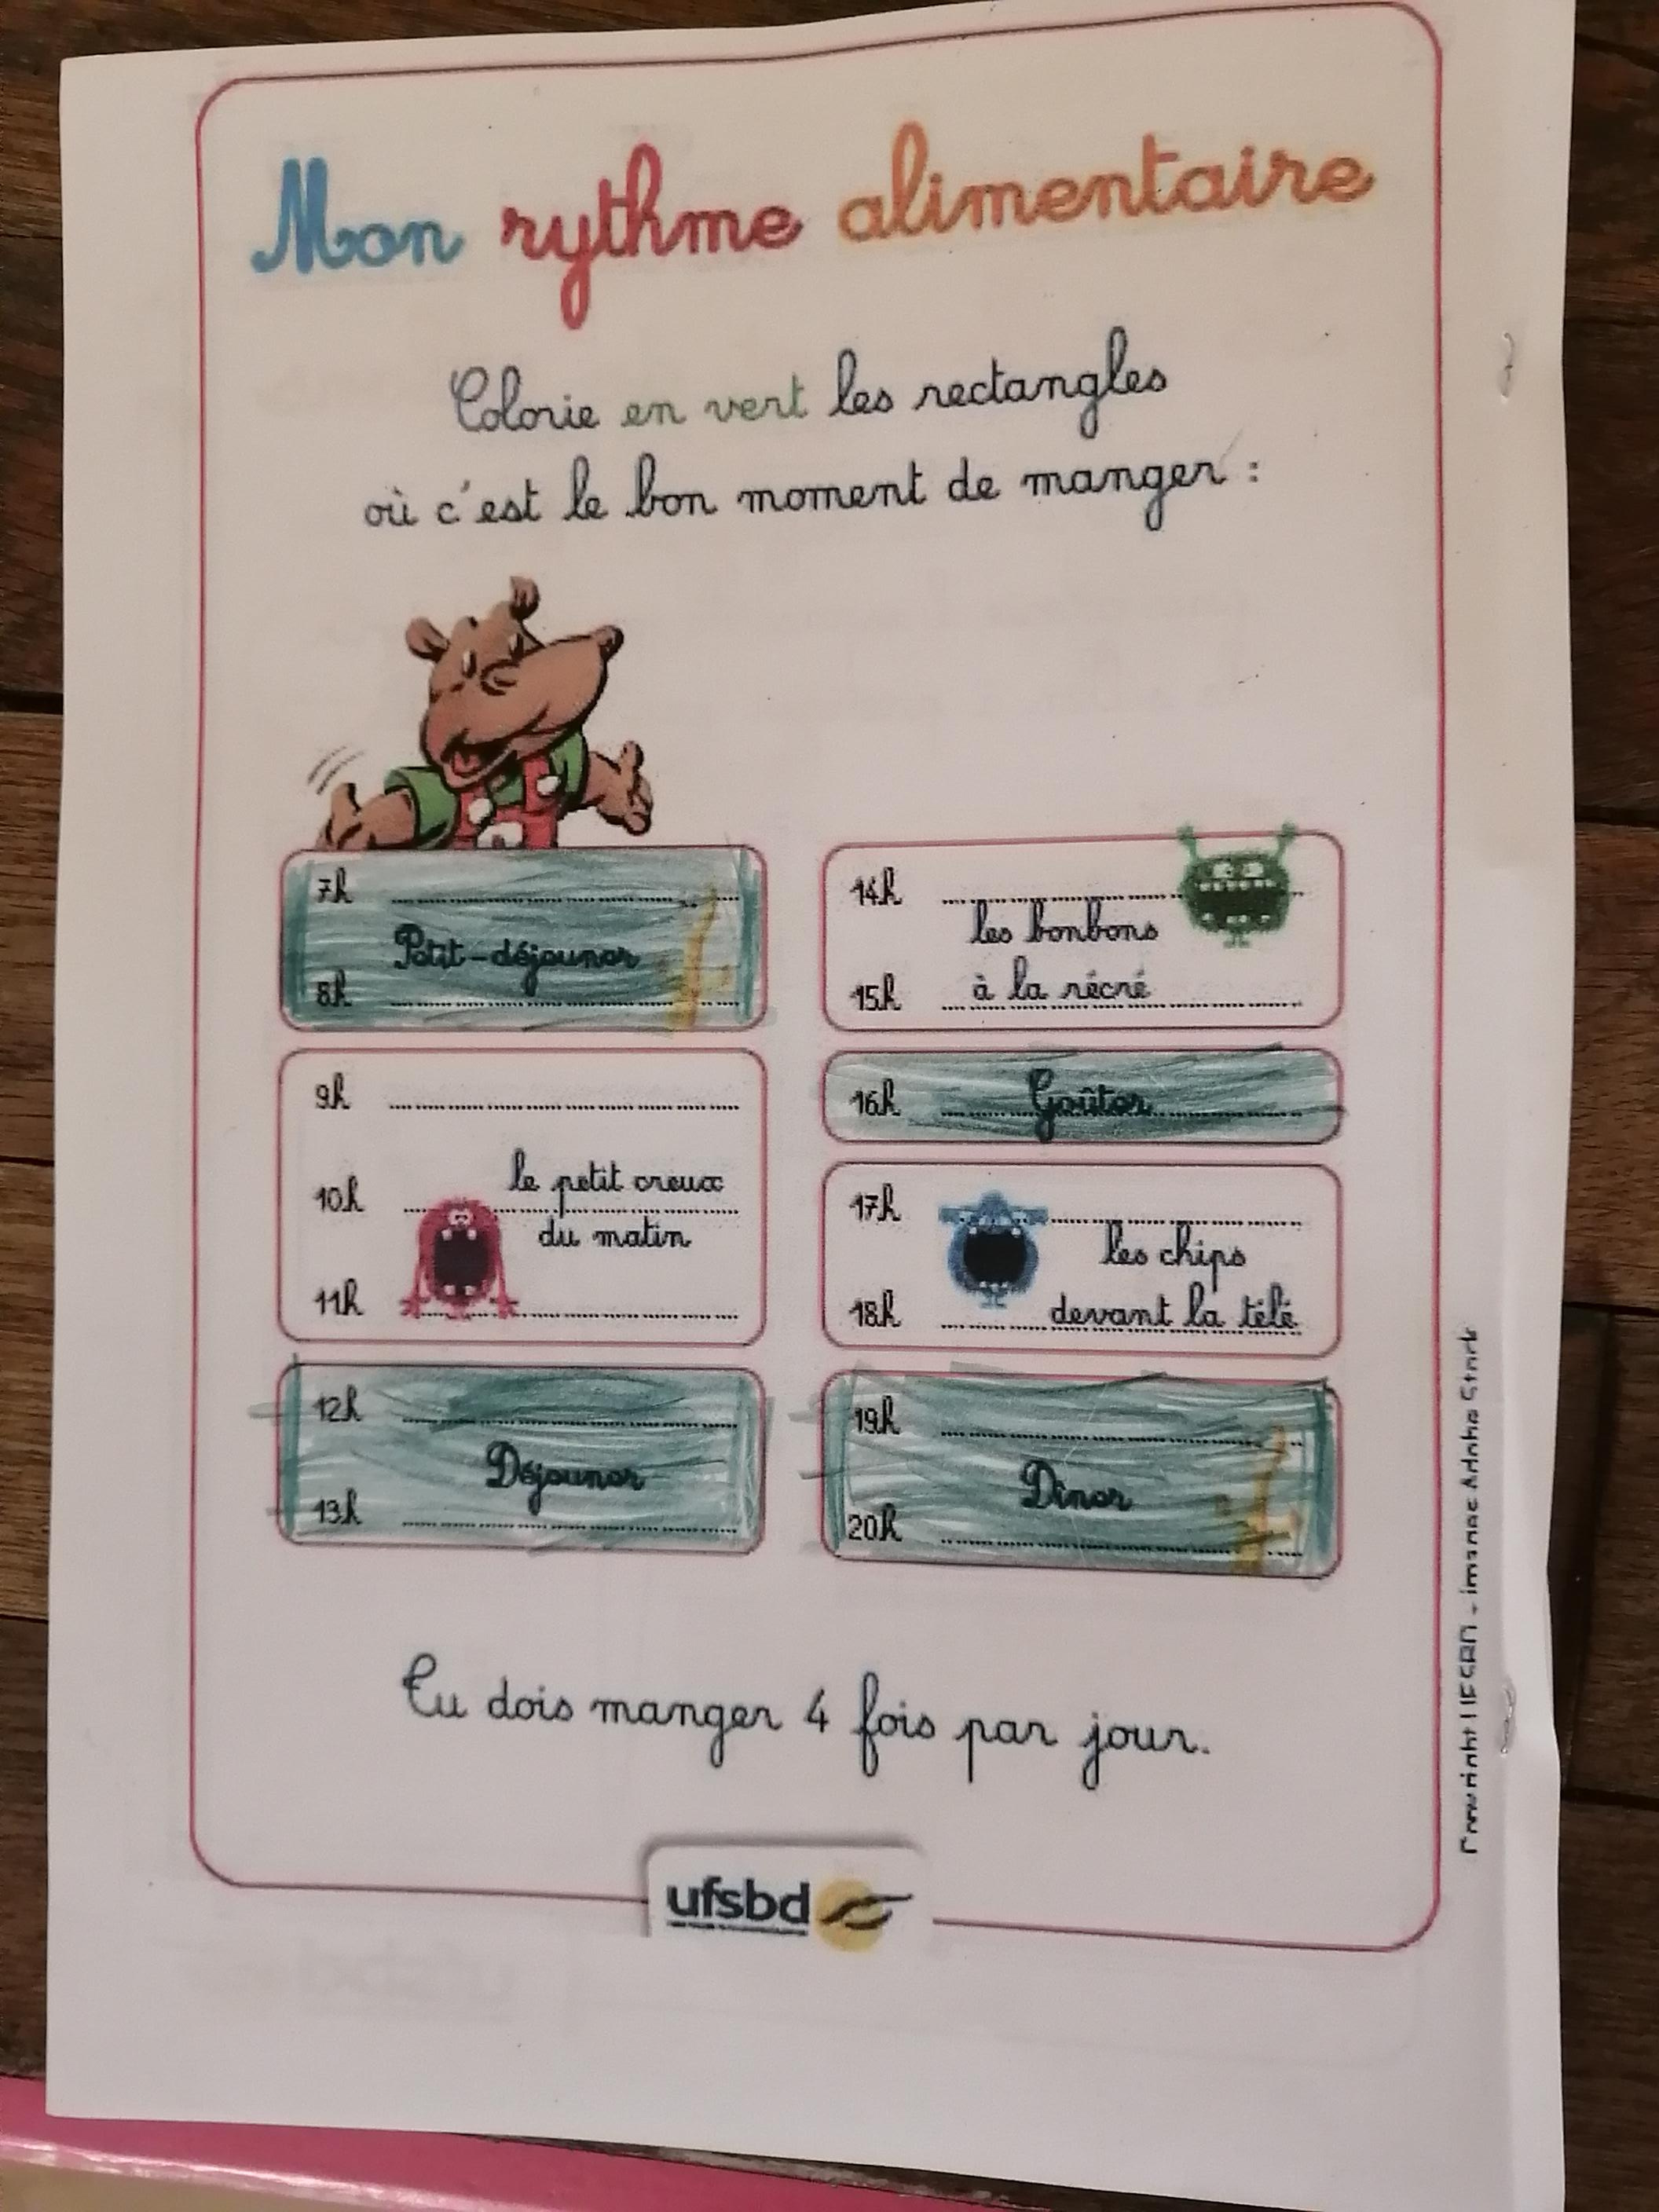 Mon rythme alimentaire
Colorie en vert les rectangles
où c'est le bon moment de manger :
7h
Petit-déjeuner
8h
9h
10h le petit creux
du matin
11h
12h
Déjeuner
13h
14h
les bonbons
15h à la récré
16h Goûter
17h
les chips
18h devant la télé
19h
Dîner
20h
Tu dois manger 4 fois par jour.
ufsbd
Copyright UFSBD - images Adobe Stock